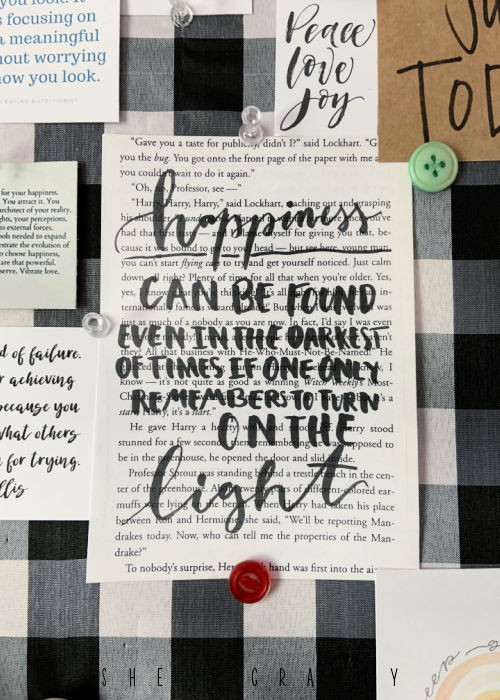 you look. It
s focusing on
a meaningful
hout worrying
how you look.
EATING NUTRITIONIST
Peace
love
joy
JU
TOD
for your happiness.
You attract it. You
architect of your reality.
ghts, your perceptions,
external forces.
ols needed to expand
strate the evolution of
to choose happiness,
are that powerful.
serve. Vibrate love.
d of failure.
r achieving
because you
what others
n for trying.
llis
"Gave you a taste for publicity, didn't I?" said Lockhart. "G
you the bug. You got onto the front page of the paper with me a
you couldn't wait to do it again."
"Oh, no, Professor, see —"
"Harry, Harry, Harry," said Lockhart, reaching out and grasping
his shoulder
had that first taste
cause it was bound to go to your head — but see here, young man,
you can't start flying cars to try and get yourself noticed. Just calm
down, all right? Plenty of time for all that when you're older. Yes,
yes, I know
just as much of a nobody as you are now. In fact, I'd say I was even
they? All that business with He-Who-Must-Not-Be-Named!" He
know — it's not quite as good as winning Witch Weekly's Most-
start, Harry, it's a start."
He gave Harry a hearty wink and strode off. Harry stood
stunned for a few seconds, then, remembering he was supposed to
be in the greenhouse, he opened the door and slid inside.
Professor Sprout was standing behind a trestle bench in the cen-
ter of the greenhouse. About twenty pairs of different-colored ear-
muffs were lying on the bench. When Harry had taken his place
between Ron and Hermione, she said, "We'll be repotting Man-
drakes today. Now, who can tell me the properties of the Man-
drake?"
To nobody's surprise, Her hand was first into the ai
happiness
CAN BE FOUND
EVEN IN THE DARKEST
OF TIMES IF ONE ONLY
REMEMBERS TO TURN
ON THE
light
SHE CRAFTY